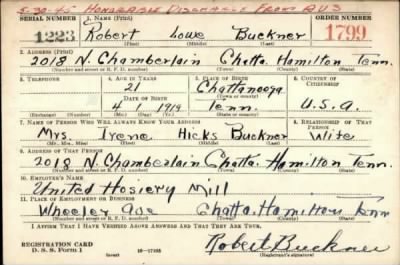 5-30-45 Honorable Discharge From AUS
SERIAL NUMBER 1. NAME (Print) ORDER NUMBER
1223 Robert Lowe Buckner 1799
(First) (Middle) (Last)
2. ADDRESS (Print)
2018 N. Chamberlain Chatta. Hamilton Tenn.
(Number and street or R. F. D. number) (Town) (County) (State)
3. TELEPHONE 4. AGE IN YEARS 5. PLACE OF BIRTH 6. COUNTRY OF CITIZENSHIP
21 Chattanooga
DATE OF BIRTH (Town or county)
4 1919 Tenn. U.S.A.
(Exchange) (No.) (Mo.) (Day) (Yr.) (State or country)
7. NAME OF PERSON WHO WILL ALWAYS KNOW YOUR ADDRESS 8. RELATIONSHIP OF THAT PERSON
Mrs. Irene Hicks Buckner Wife
(Mr., Mrs., Miss) (First) (Middle) (Last)
9. ADDRESS OF THAT PERSON
2018 N. Chamberlain Chatta. Hamilton Tenn.
(Number and street or R. F. D. number) (Town) (County) (State)
10. EMPLOYER'S NAME
United Hosiery Mill
11. PLACE OF EMPLOYMENT OR BUSINESS
Wheeler Ave Chatta. Hamilton Tenn
(Number and street or R. F. D. number) (Town) (County) (State)
I AFFIRM THAT I HAVE VERIFIED ABOVE ANSWERS AND THAT THEY ARE TRUE.
REGISTRATION CARD
D. S. S. Form 1 (over) 16-17105 Robert Buckner
(Registrant's signature)